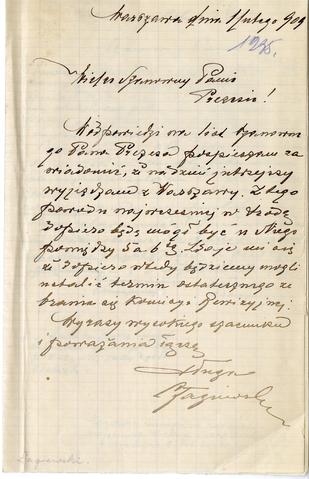 Warszawa dnia 1 lutego 909
1235.
Wielce Szanowny Panie
Prezesie!
W odpowiedzi na list szanowne
go Pana Prezesa pospieszam za
wiadomić, iż na dzień jutrzejszy
wyjeżdżam z Warszawy. Z tego
powodu najwcześniej w środę
dopiero będę mógł być u Niego
pomiędzy 5 a 6 tą. Zdaje mi się
że dopiero wtedy będziemy mogli
ustalić termin ostatecznego ze
brania się Komisyi Rewizyjnej.
Wyrazy wysokiego szacunku
i poważania łączę
Sługa
Łagiewski